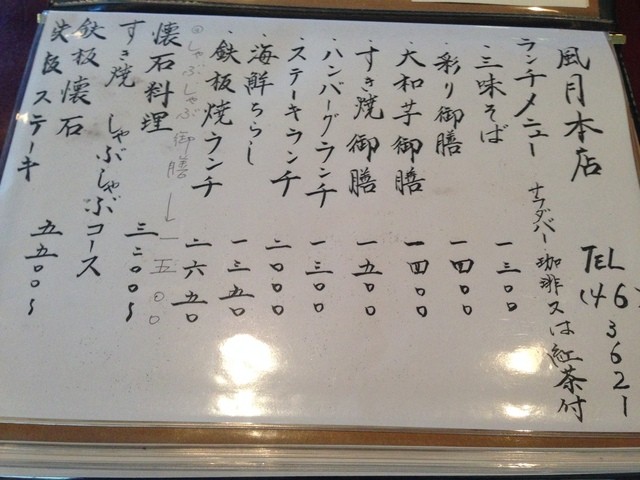 風月本店
TEL
(46
3621
ランチメニュー サラダバー・珈琲又は紅茶付
・三味そば 一三〇〇
・彩り御膳 一四〇〇
・大和芋御膳 一四〇〇
・すき焼御膳 一五〇〇
・ハンバーグランチ 一三〇〇
・ステーキランチ 二〇〇〇
・海鮮ちらし 一三五〇
・鉄板焼ランチ 二六五〇
しゃぶしゃぶ御膳 一五〇〇
懐石料理 三二〇〇〜
すき焼 しゃぶしゃぶコース
鉄板懐石
鉄板ステーキ 五五〇〇〜